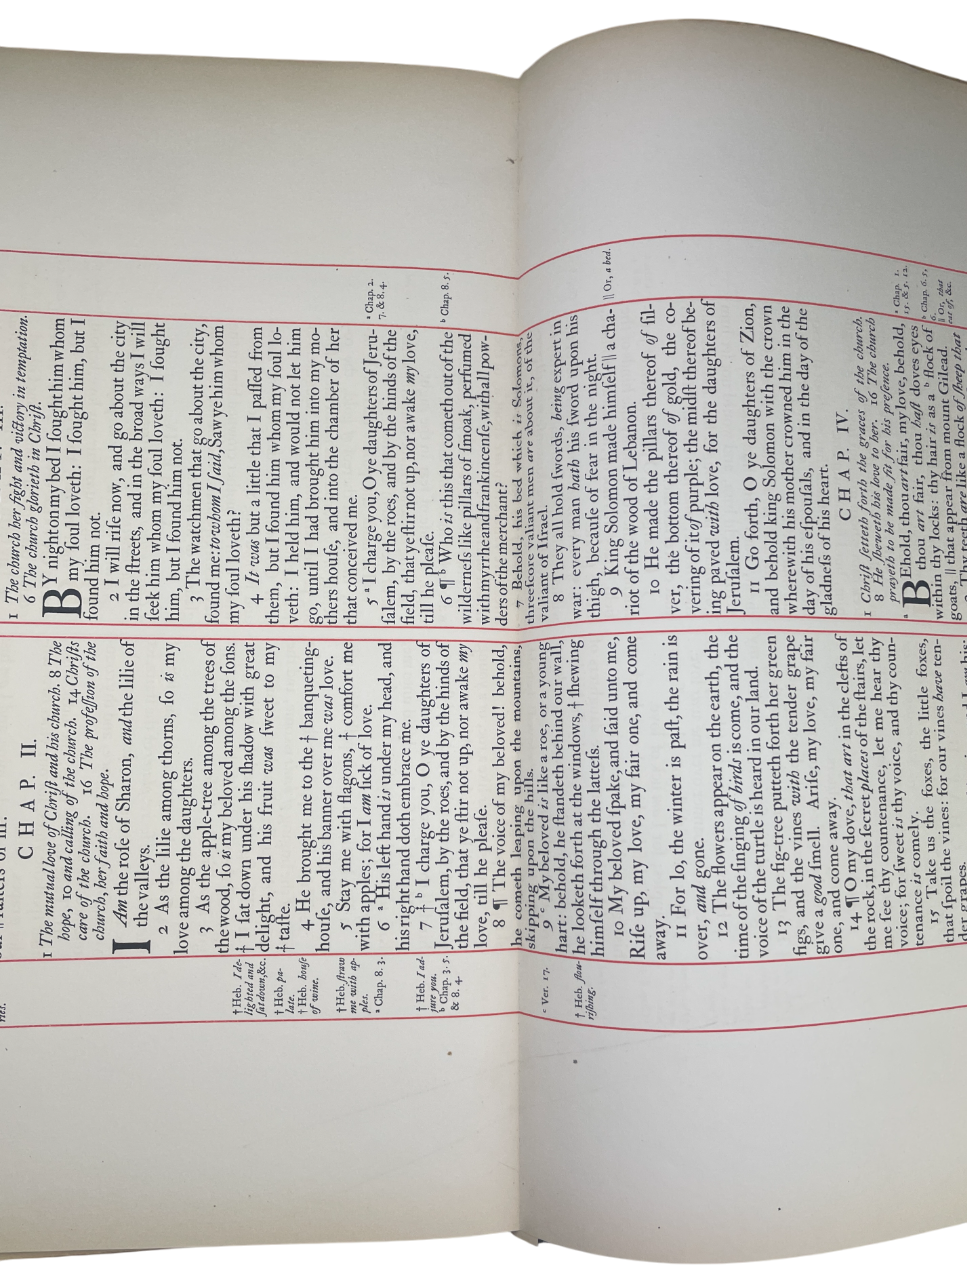 C H A P. II.
1 The mutual love of Chriſt and his church. 8 The
hope, 10 and calling of the church. 14 Chriſts
care of the church. 16 The profeſſion of the
church, her faith and hope.
I Am the roſe of Sharon, and the lilie of
the valleys.
2 As the lilie among thorns, ſo is my
love among the daughters.
3 As the apple-tree among the trees of
the wood, ſo is my beloved among the ſons.
† I ſat down under his ſhadow with great
delight, and his fruit was ſweet to my
† taſte.
4 He brought me to the † banqueting-
houſe, and his banner over me was love.
5 Stay me with flagons, † comfort me
with apples; for I am ſick of love.
6 ᵃ His left hand is under my head, and
his right hand doth embrace me.
7 † ᵇ I charge you, O ye daughters of
Jeruſalem, by the roes, and by the hinds of
the field, that ye ſtir not up, nor awake my
love, till he pleaſe.
8 ¶ The voice of my beloved! behold,
he cometh leaping upon the mountains,
skipping upon the hills.
9 ᶜ My beloved is like a roe, or a young
hart: behold, he ſtandeth behind our wall,
he looketh forth at the windows, † ſhewing
himſelf through the latteſs.
10 My beloved ſpake, and ſaid unto me,
Riſe up, my love, my fair one, and come
away.
11 For lo, the winter is paſt, the rain is
over, and gone.
12 The flowers appear on the earth, the
time of the ſinging of birds is come, and the
voice of the turtle is heard in our land.
13 The fig-tree putteth forth her green
figs, and the vines with the tender grape
give a good ſmell. Ariſe, my love, my fair
one, and come away.
14 ¶ O my dove, that art in the clefts of
the rock, in the ſecret places of the ſtairs, let
me ſee thy countenance, let me hear thy
voice; for ſweet is thy voice, and thy coun-
tenance is comely.
15 Take us the foxes, the little foxes,
that ſpoil the vines: for our vines have ten-
der grapes.
† Heb. I de-
lighted and
ſat down, &c.
† Heb. pa-
late.
† Heb. houſe
of wine.
† Heb. ſtraw
me with ap-
ples.
ᵃ Chap. 8. 3.
† Heb. I ad-
jure you.
ᵇ Chap. 3. 5.
& 8. 4.
ᶜ Ver. 17.
† Heb. flou-
riſhing.
1 The church her fight and victory in temptation.
6 The church glorieth in Chriſt.
BY night on my bed I ſought him whom
my ſoul loveth: I ſought him, but I
found him not.
2 I will riſe now, and go about the city
in the ſtreets, and in the broad ways I will
ſeek him whom my ſoul loveth: I ſought
him, but I found him not.
3 The watchmen that go about the city,
found me: to whom I ſaid, Saw ye him whom
my ſoul loveth?
4 It was but a little that I paſſed from
them, but I found him whom my ſoul lo-
veth: I held him, and would not let him
go, until I had brought him into my mo-
thers houſe, and into the chamber of her
that conceived me.
5 ᵃ I charge you, O ye daughters of Jeru-
ſalem, by the roes, and by the hinds of the
field, that ye ſtir not up, nor awake my love,
till he pleaſe.
6 ¶ ᵇ Who is this that cometh out of the
wilderneſs like pillars of ſmoak, perfumed
with myrrhe and frankincenſe, with all pow-
ders of the merchant?
7 Behold, his bed which is Solomons,
threeſcore valiant men are about it, of the
valiant of Iſrael.
8 They all hold ſwords, being expert in
war: every man hath his ſword upon his
thigh, becauſe of fear in the night.
9 King Solomon made himſelf || a cha-
riot of the wood of Lebanon.
10 He made the pillars thereof of ſil-
ver, the bottom thereof of gold, the co-
vering of it of purple; the midſt thereof be-
ing paved with love, for the daughters of
Jeruſalem.
11 Go forth, O ye daughters of Zion,
and behold king Solomon with the crown
wherewith his mother crowned him in the
day of his eſpouſals, and in the day of the
gladneſs of his heart.
C H A P. IV.
1 Chriſt ſetteth forth the graces of the church.
8 He ſheweth his love to her. 16 The church
prayeth to be made fit for his preſence.
ᵃ BEhold, thou art fair, my love, behold,
thou art fair, thou haſt doves eyes
within thy locks: thy hair is as a ᵇ flock of
goats, || that appear from mount Gilead.
2 Thy teeth are like a flock of ſheep that
ᵃ Chap. 2.
7. & 8. 4.
ᵇ Chap. 8. 5.
|| Or, a bed.
ᵃ Chap. 1.
15. & 5. 12.
ᵇ Chap. 6. 5,
6.
|| Or, that
eat of, &c.